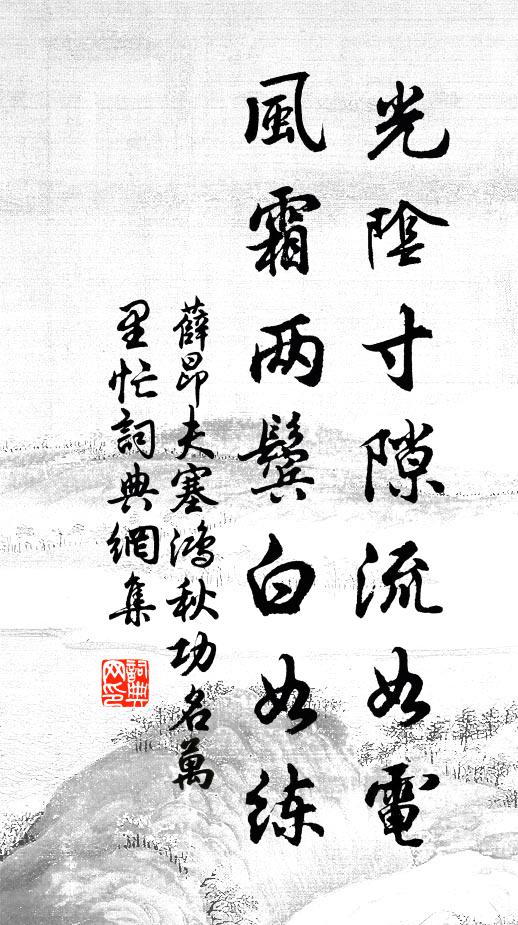 光陰寸隙流如電
風霜两鬢白如练
薛昂夫塞鴻秋功名萬
里忙詞典網集
詞典网印